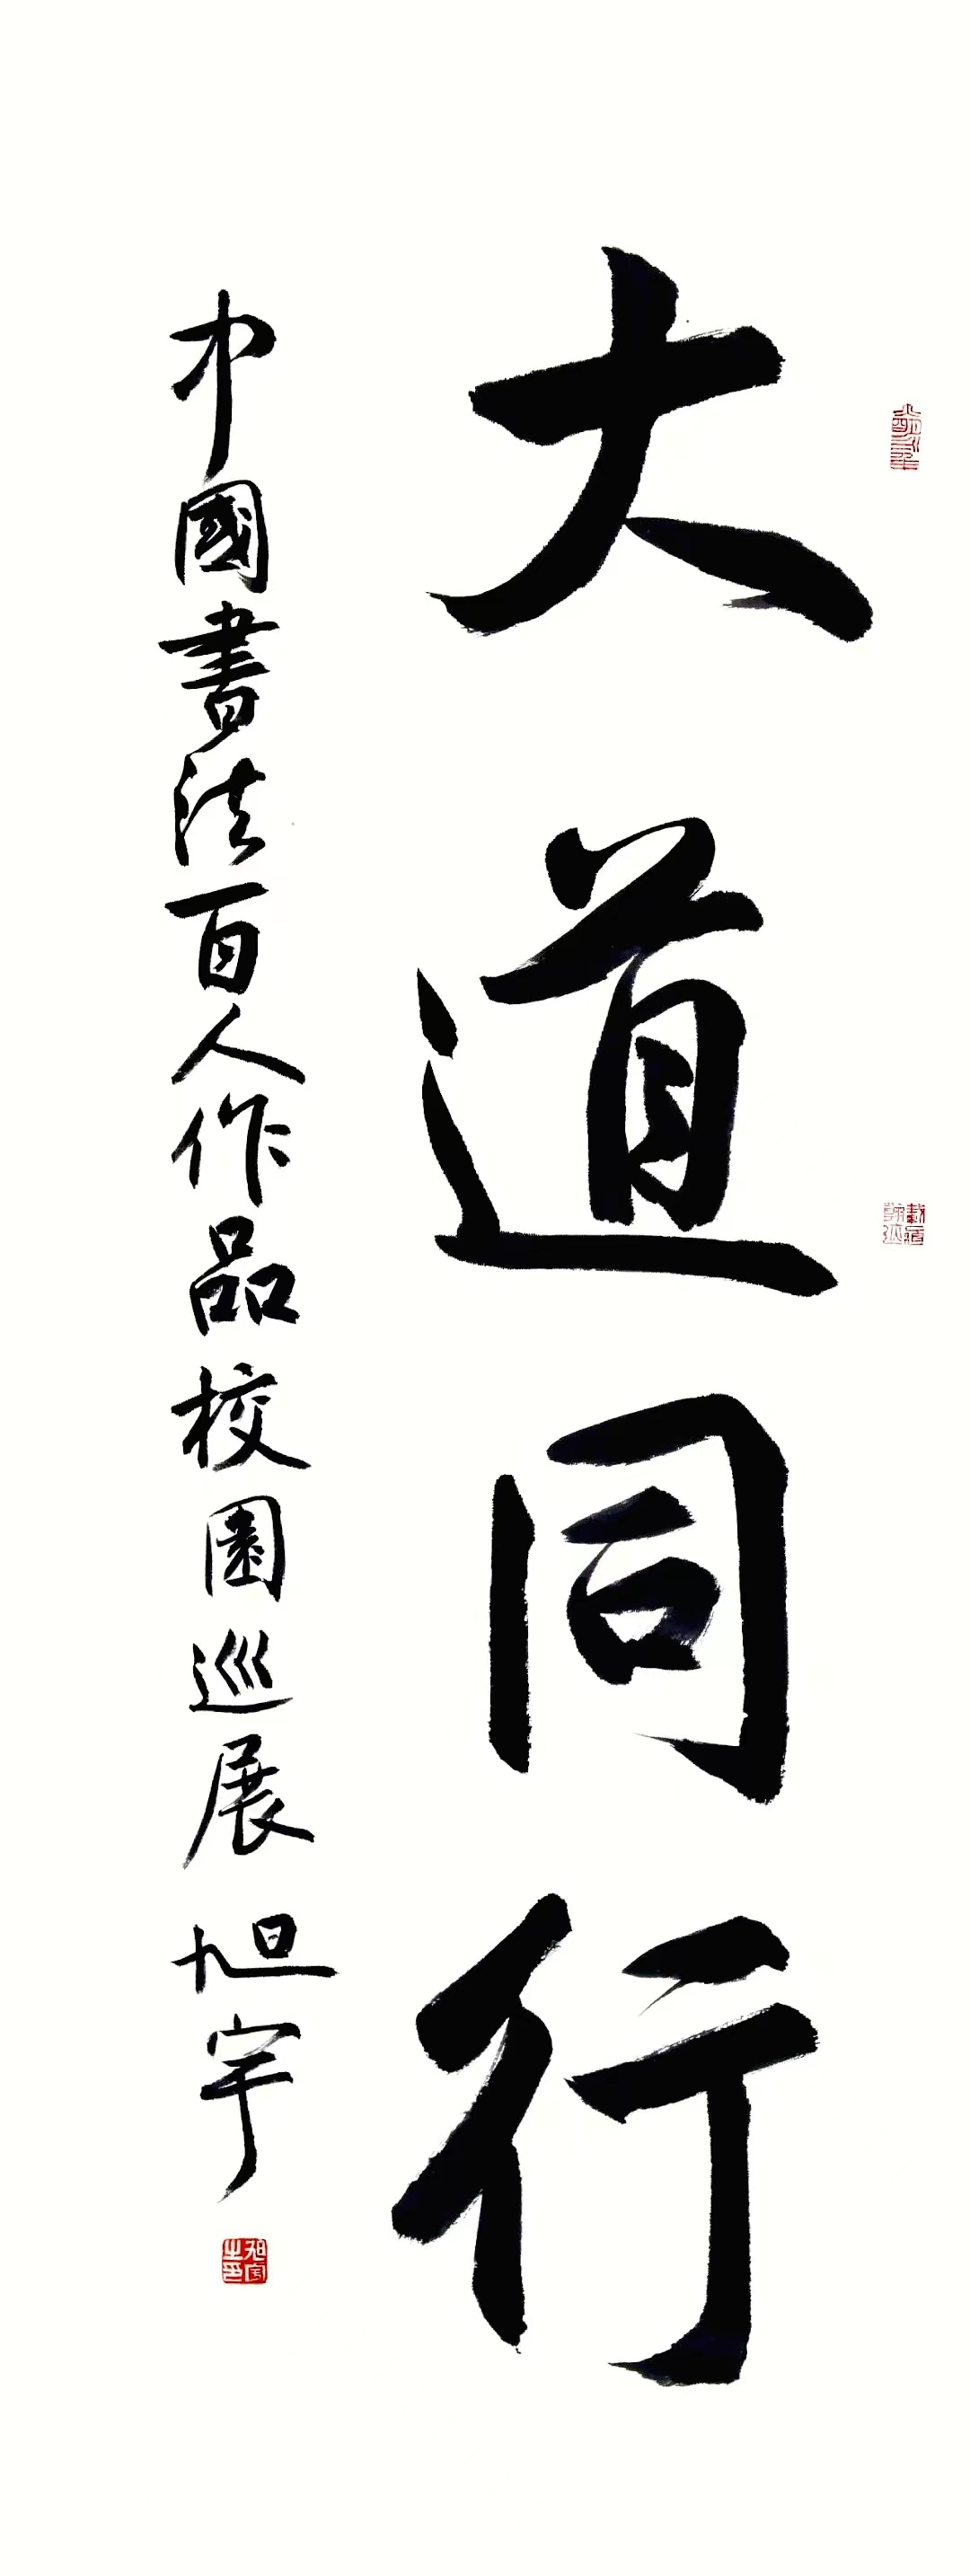 大道同行
中國書法百人作品校園巡展 旭宇
旭宇之印